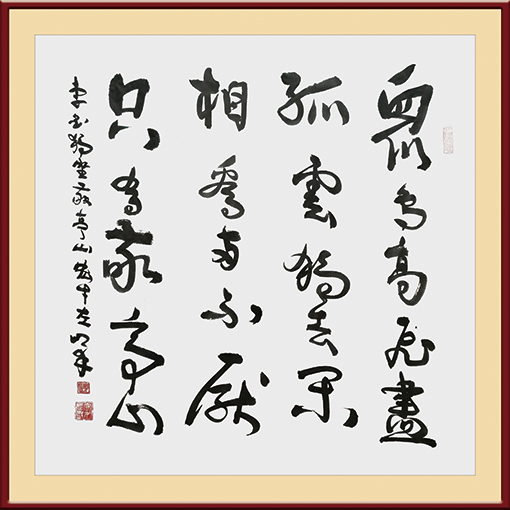 眾鳥高飛盡
孤雲獨去閑
相看兩不厭
只有敬亭山
李白獨坐敬亭山